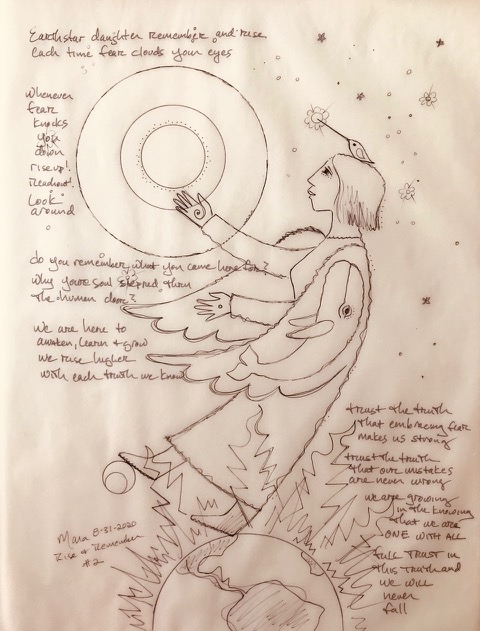 Earthstar daughter remember and rise
each time fear clouds your eyes
Whenever
fear
knocks
you
down
rise up!
Reach out!
Look
around
do you remember what you came here for?
Why your soul stepped thru
the human door?
we are here to
awaken, learn & grow
we rise higher
with each truth we know
trust the truth
that embracing fear
makes us strong
trust the truth
that our mistakes
are never wrong
we are growing
in the knowing
that we are
ONE WITH ALL
full TRUST in
this Truth and
we will
never
fall
Mara 8-31-2020
Rise & Remember
#2